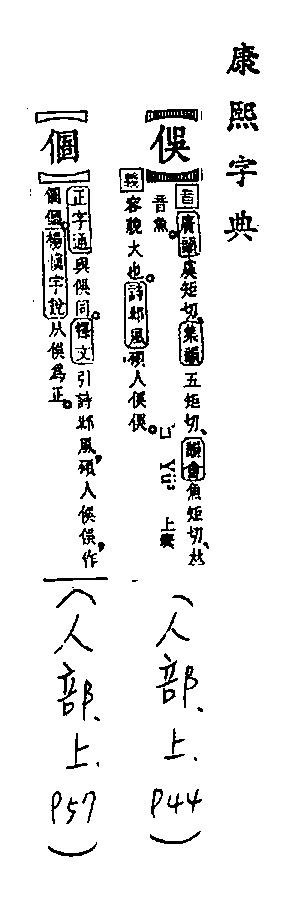 康熙字典
【俁】
音廣韻虞矩切、集韻五矩切、韻會魚矩切、𠀤
音魚。 ㄩˇ Yüˇ 上麌
義容貌大也。詩邶風、碩人俁俁。
(人部、上、P44)
【個】
正字通與俁同。釋文引詩邶風、碩人俁俁、作
個個。楊慎字說从俁爲正。
(人部、上、P57)